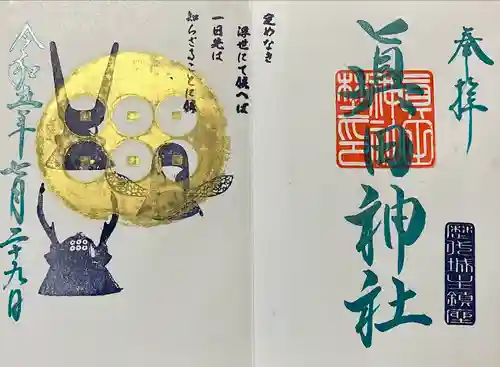 奉拝
眞田神社
歴代城主鎮座
定めなき
浮世にて候へば
一日先は
知らざることに候
令和五年七月二十九日